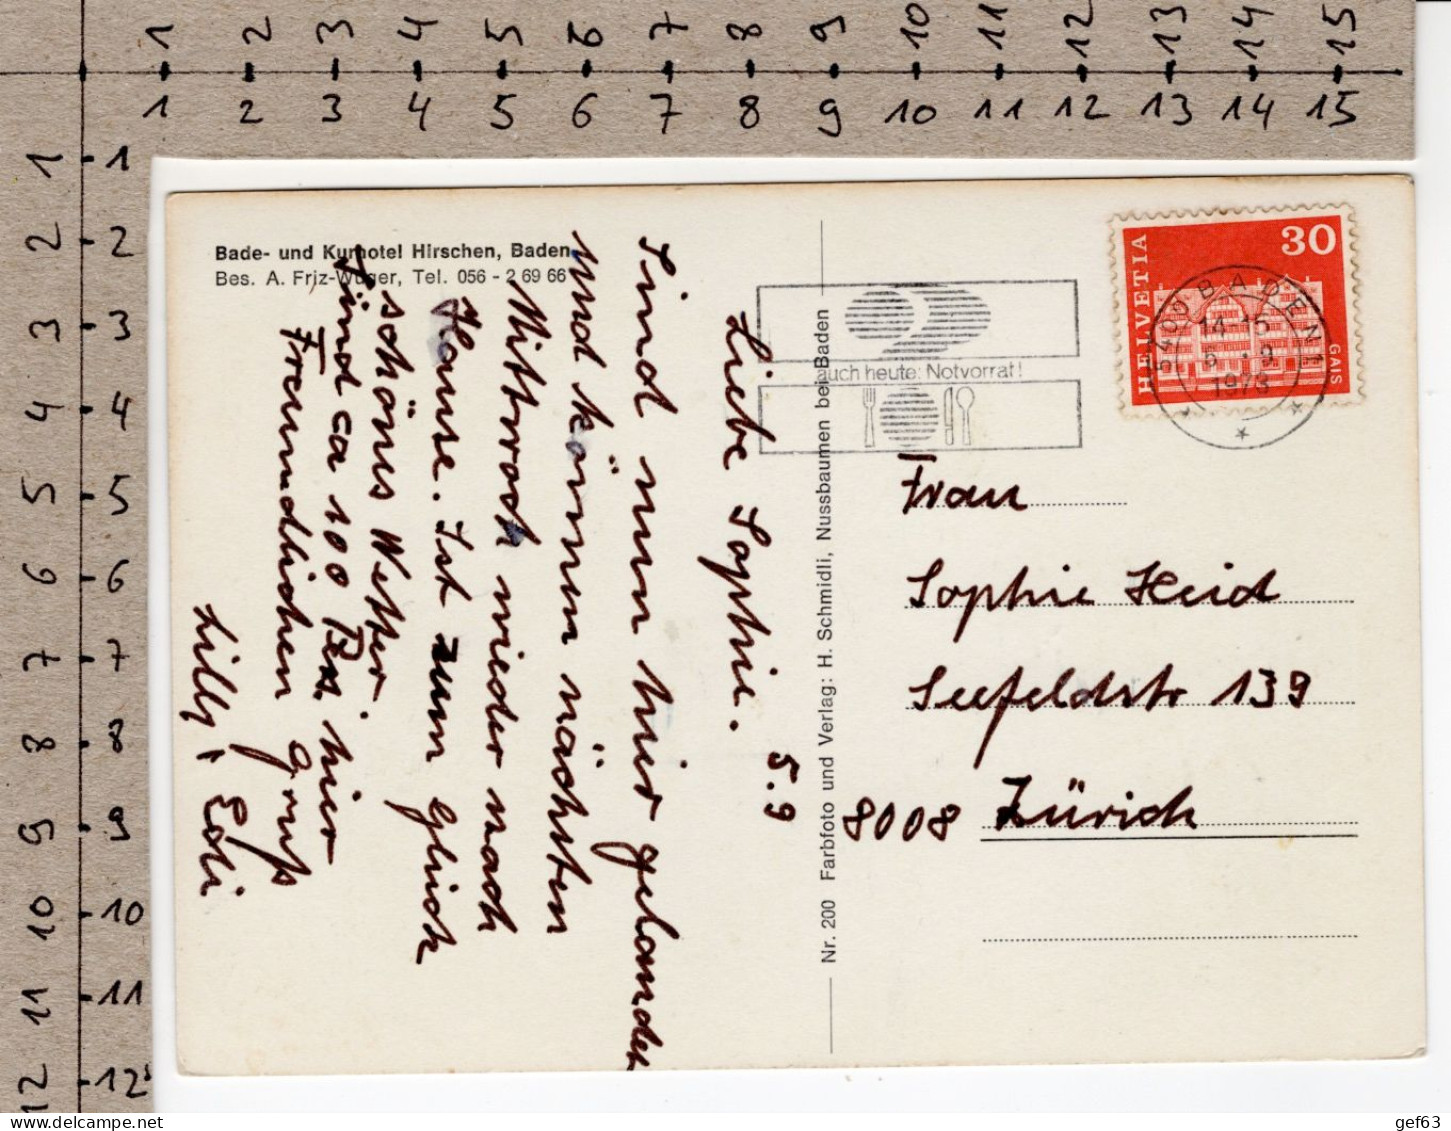 1 2 3 4 5 6 7 8 9 10 11 12 13 14 15
1 2 3 4 5 6 7 8 9 10 11 12 13 14 15
1 2 3 4 5 6 7 8 9 10 11 12
1 2 3 4 5 6 7 8 9 10 11 12
Bade- und Kurhotel Hirschen, Baden
Bes. A. Friz-Wüger, Tel. 056 - 2 69 66
5.9
Liebe Sophie.
Sind nun hier gelandet
und können nächsten
Mittwoch wieder nach
Hause. Ist zum Glück
schönes Wetter.
Sind ca 100 Pers. hier
Freundlichen Gruss
Lilly + Edi
Nr. 200 Farbfoto und Verlag: H. Schmidli, Nussbaumen bei Baden
auch heute: Notvorrat!
HELVETIA
30
GAIS
5400 BADEN 1
14-15
5.-9
1973
Frau
Sophie Heid
Seefeldstr 139
8008 Zürich
gef63